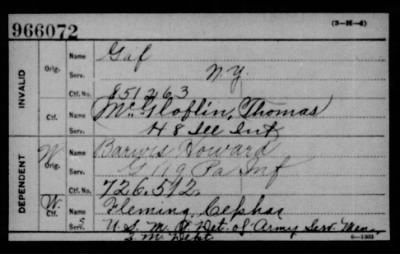 966072
(3-H-4)
INVALID
Orig. Name Gaf
Serv. N.Y.
Ctf. No. 851263
Ctf. Name McGloflin, Thomas
Serv. H 8 Ill Inf
DEPENDENT
W. Orig. Name Barwis Howard
Serv. G 119 Pa Inf
Ctf. No. 726.512.
W. Ctf. Name Fleming, Cephas
S. Serv. U.S.M.A Det. of Army Serv. Men
Q.M. Dept
6-1903